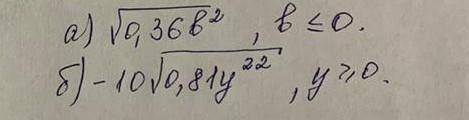 а) √0,36b², b ≤ 0.
б) -10√0,81y²², y ⩾ 0.